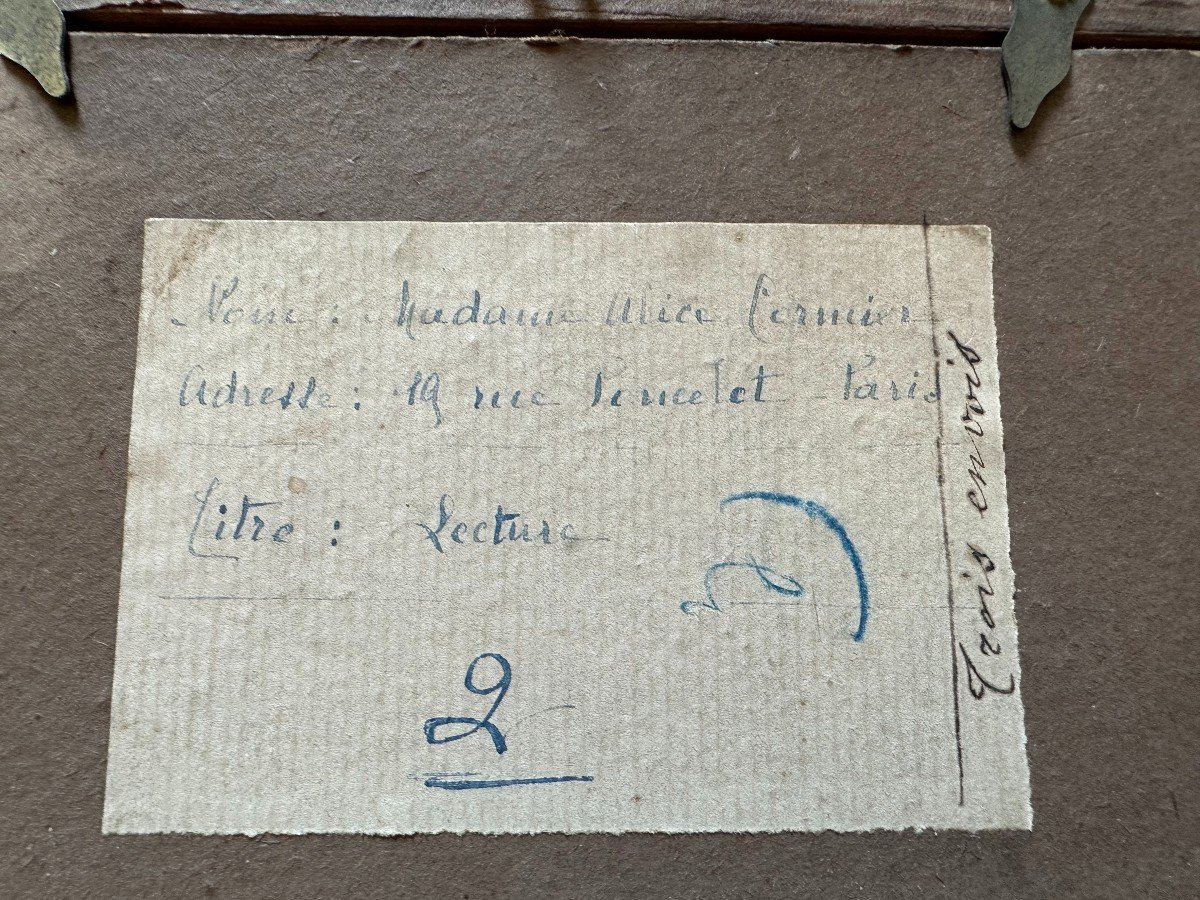 Nom : Madame Alice Cormier
Adresse : 19 rue Poncelet Paris
Titre : Lecture
2
Trois envois